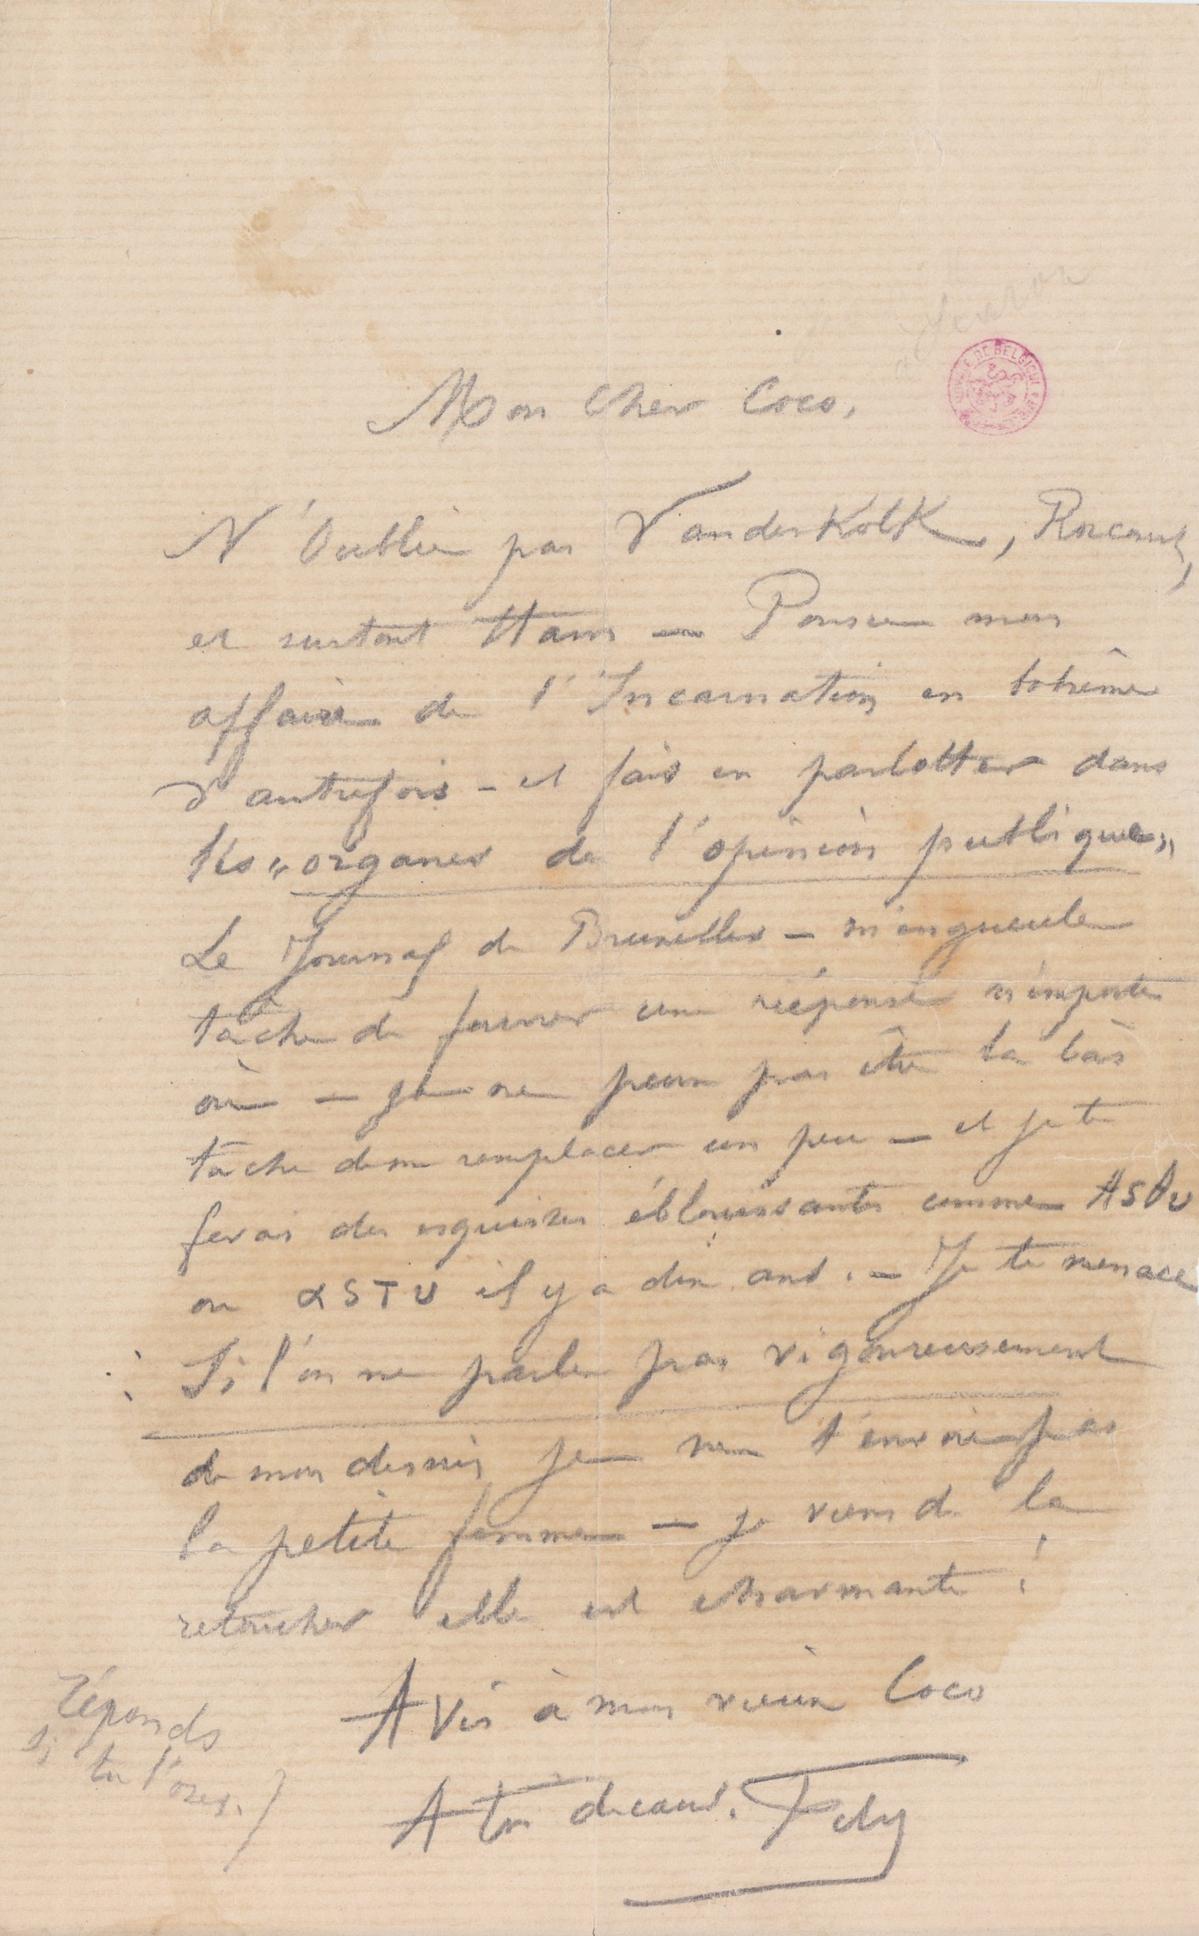 Mon Cher Coco,
N'Oublie pas VanderKolK,
et surtout Ham — Pousse mon
affaire de l'Incarnation en bohême
d'autrefois - et fais en parlotter dans
les « organes de l'opinion publique »
Le Journal de Bruxelles — m'engueule
tâche de fourrer une réponse n'importe
où — je ne peux pas être la bàs
tache de me remplacer un peu — et je te
ferai des esquisses éblouissantes comme
ou il y a dix ans. — Je te menace
: Si l'on ne parle pas vigoureusement
de mon dessin je ne t'envoie pas
la petite femme — je viens de la
retoucher elle est charmante !
Avis à mon vieux Coco
A toi de cœur. Fély
réponds
si tu l'oses.